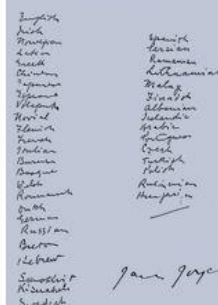 English
Irish
Norwegian
Latin
Greek
Chinese
Japanese
Volapuk
Novial
Flemish
French
Italian
Burmese
Basque
Romansch
Dutch
German
Russian
Breton
Hebrew
Sanskrit
Kiswahili
Swedish
Spanish
Persian
Rumanian
Lithuanian
Malay
Finnish
Albanian
Icelandic
Arabic
Portuguese
Czech
Turkish
Polish
Ruthenian
Hungarian
James Joyce